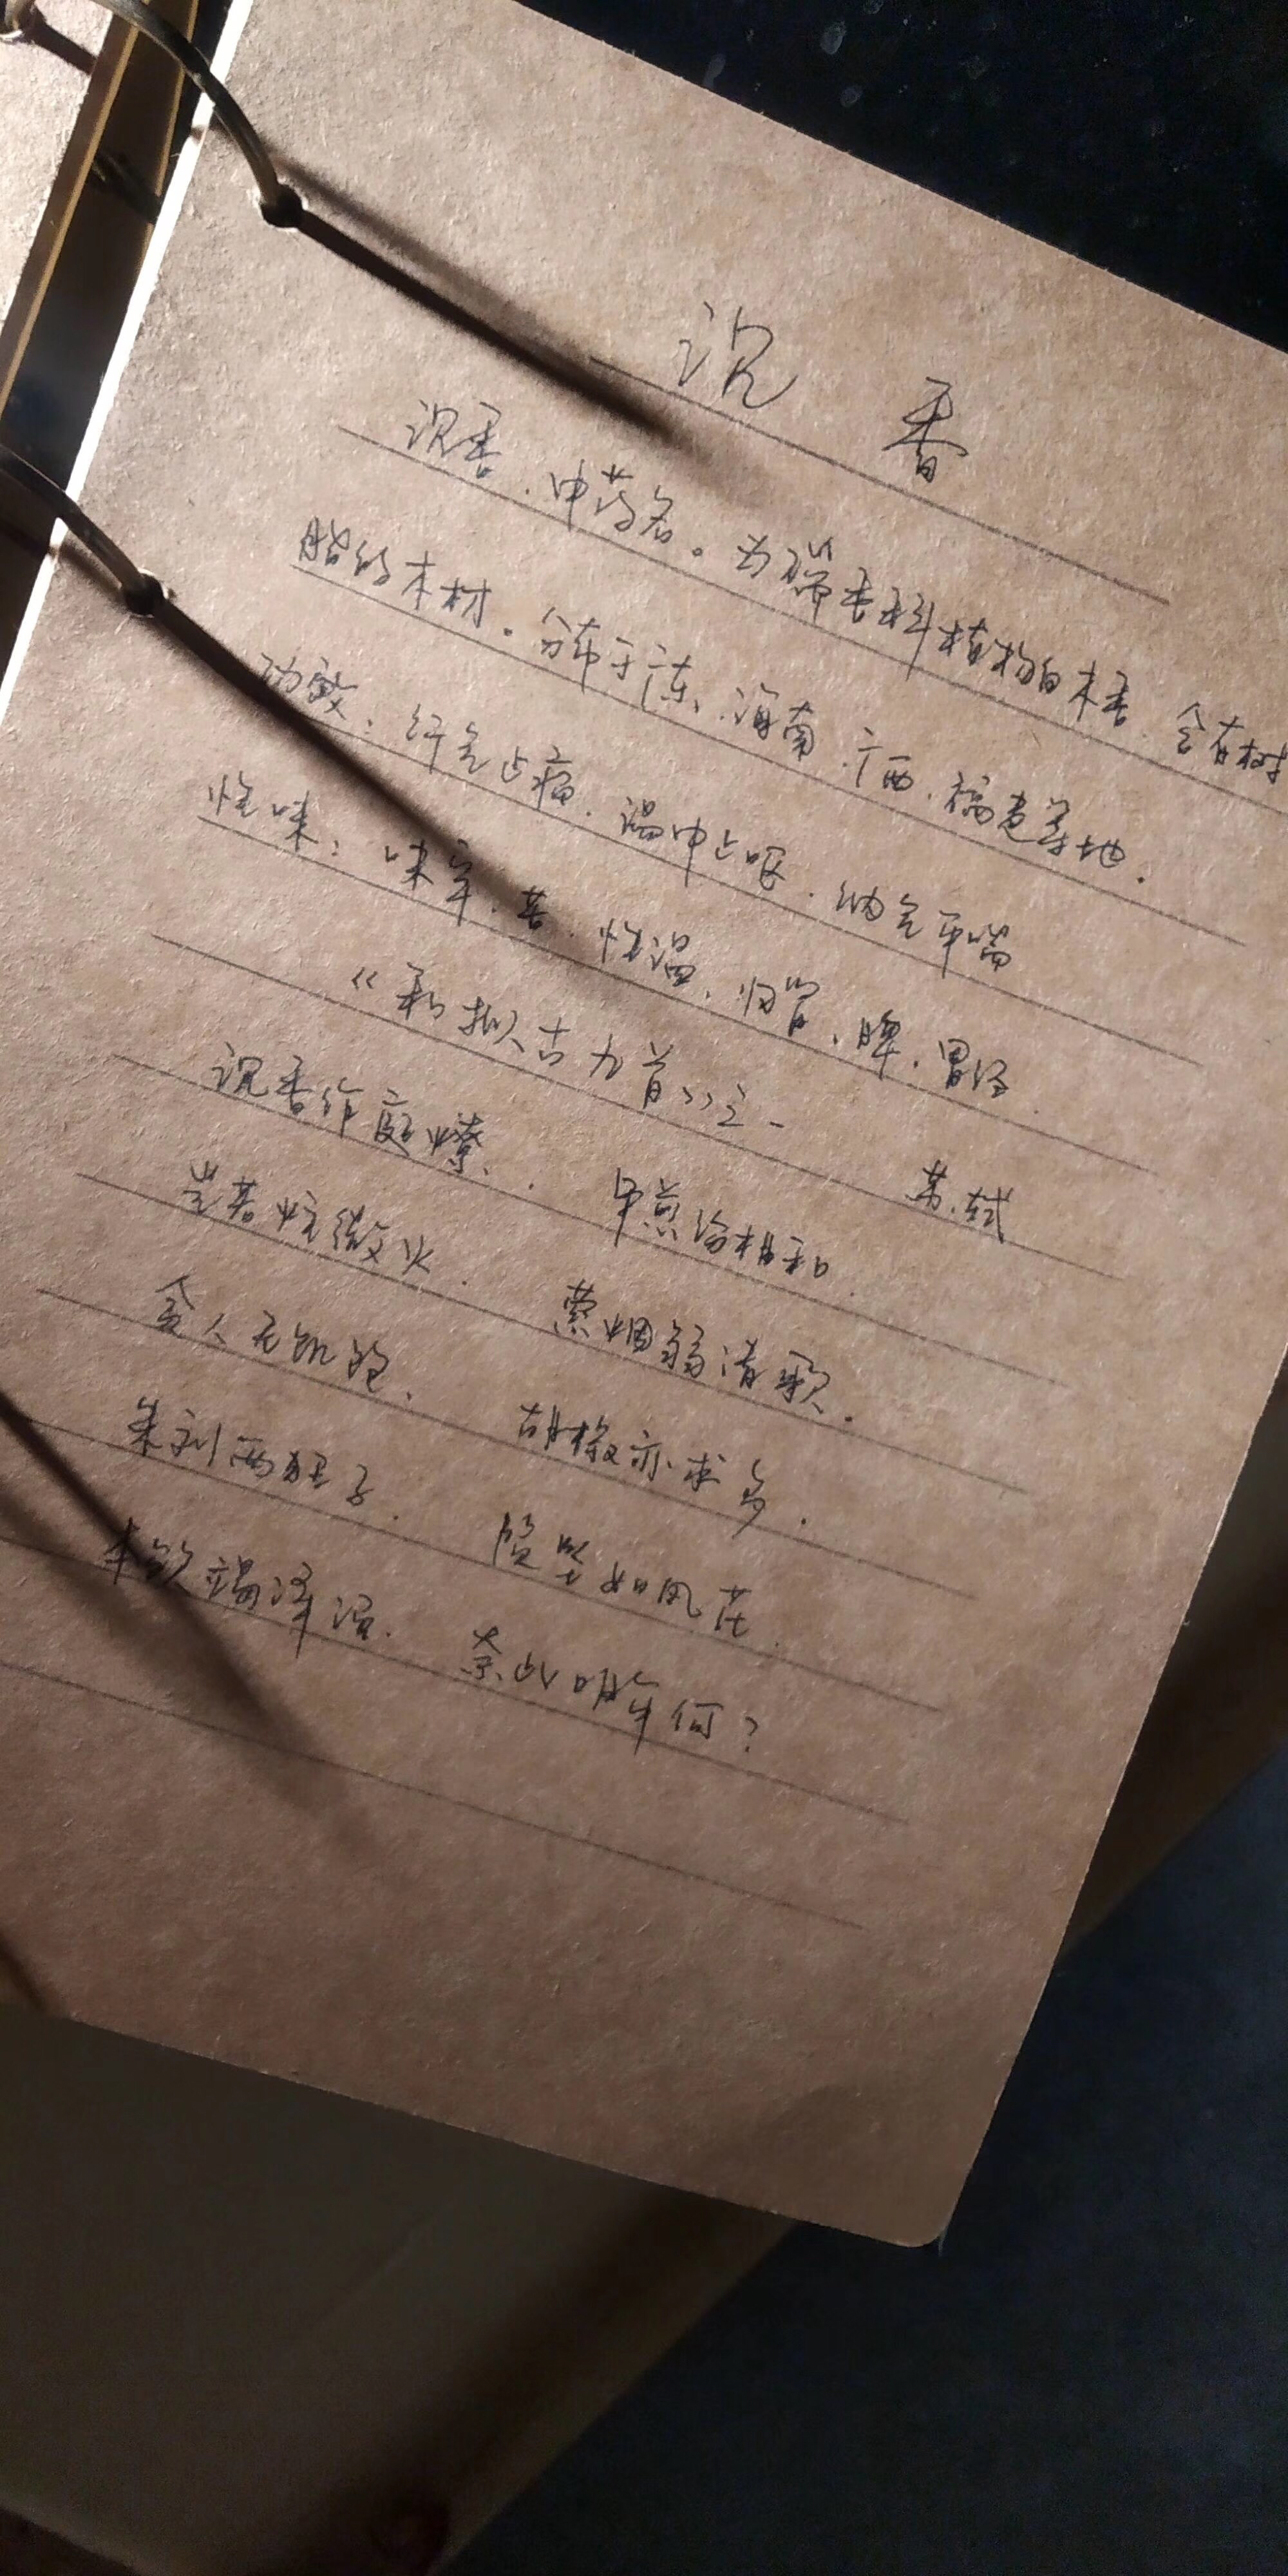 沉 香
沉香，中药名。为瑞香科植物白木香，含有树
脂的木材。分布于广东、海南、广西、福建等地。
功效：行气止痛，温中止呕，纳气平喘
性味：味辛、苦，性温，归肾、脾、胃经
《和拟古九首》之一 苏轼
沉香作庭燎， 甲煎纷相和
岂若炷微火， 萦烟弱清歌。
贪人无饥饱， 胡椒亦求多。
朱刘两狂子， 陨坠如风花
本欲竭泽渔， 奈此明年何？